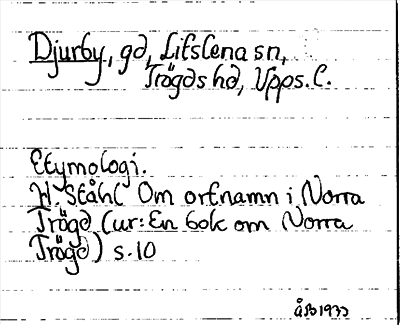 Djurby, gd, Litslena sn,
Trögds hd, Upps. l.
Etymologi.
H. Ståhl Om ortnamn i Norra
Trögd (ur: En bok om Norra
Trögd) s. 10
1933